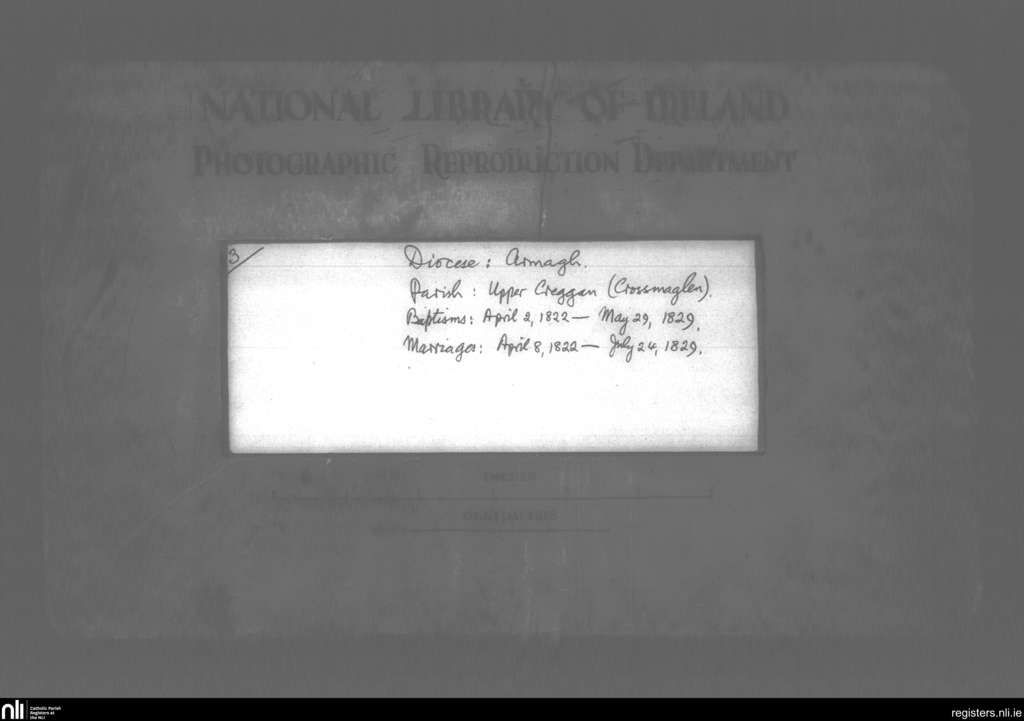 NATIONAL LIBRARY OF IRELAND
PHOTOGRAPHIC REPRODUCTION DEPARTMENT
3/
Diocese: Armagh.
Parish: Upper Creggan (Crossmaglen).
Baptisms: April 2, 1822 — May 29, 1829.
Marriages: April 8, 1822 — July 24, 1829.
INCHES
CENTIMETRES
nli
Catholic Parish
Registers at
the NLI
registers.nli.ie